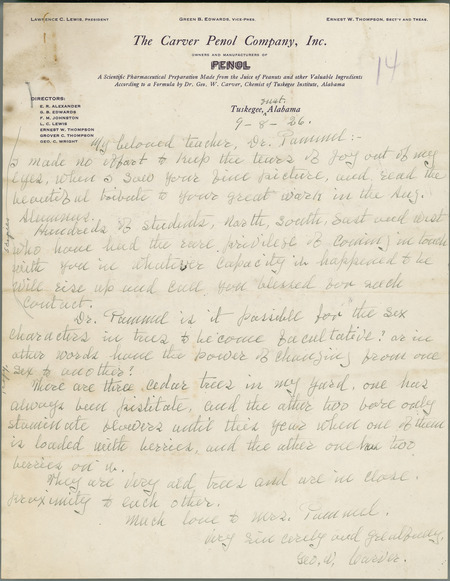 LAWRENCE C. LEWIS, PRESIDENT GREEN B. EDWARDS, VICE-PRES. ERNEST W. THOMPSON, SECT'Y AND TREAS.
The Carver Penol Company, Inc.
OWNERS AND MANUFACTURERS OF
PENOL
14
A Scientific Pharmaceutical Preparation Made from the Juice of Peanuts and other Valuable Ingredients
According to a Formula by Dr. Geo. W. Carver, Chemist of Tuskegee Institute, Alabama
DIRECTORS:
E. R. ALEXANDER
G. B. EDWARDS
F. M. JOHNSTON
L. C. LEWIS
ERNEST W. THOMPSON
GROVER C. THOMPSON
GEO. C. WRIGHT
Inst.
Tuskegee, Alabama
9-8-'26.
My beloved teacher, Dr. Pammel:-
I made no effort to keep the tears of joy out of my
eyes, when I saw your fine picture, and read the
beautiful tribute to your great work in the Aug.
Alumnus.
Hundreds of students, North, South, East and West
who have had the rare privilege of coming in touch
with you in whatever capacity it happened to be
will rise up and call you blessed for such
contact.
Dr. Pammel is it possible for the sex
characters in trees to become facultative? or in
other words have the power of changing from one
sex to another?
There are three cedar trees in my yard, one has
always been pistilate, and the other two bore only
staminate flowers until this year when one of them
is loaded with berries, and the other one has two
berries on it.
They are very old trees and are in close
proximity to each other.
Much love to Mrs. Pammel.
Very sincerely and gratefully,
Geo. W. Carver.